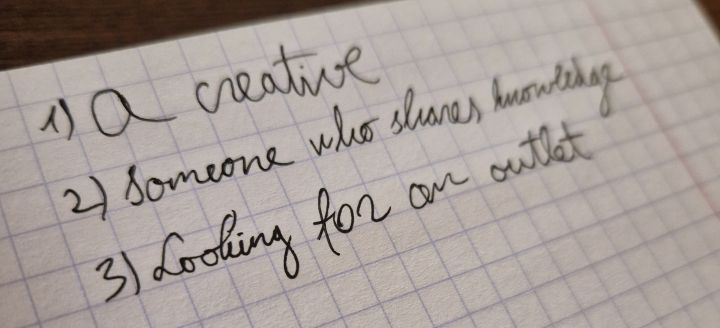 1) a creative
2) Someone who shares knowledge
3) Looking for an outlet